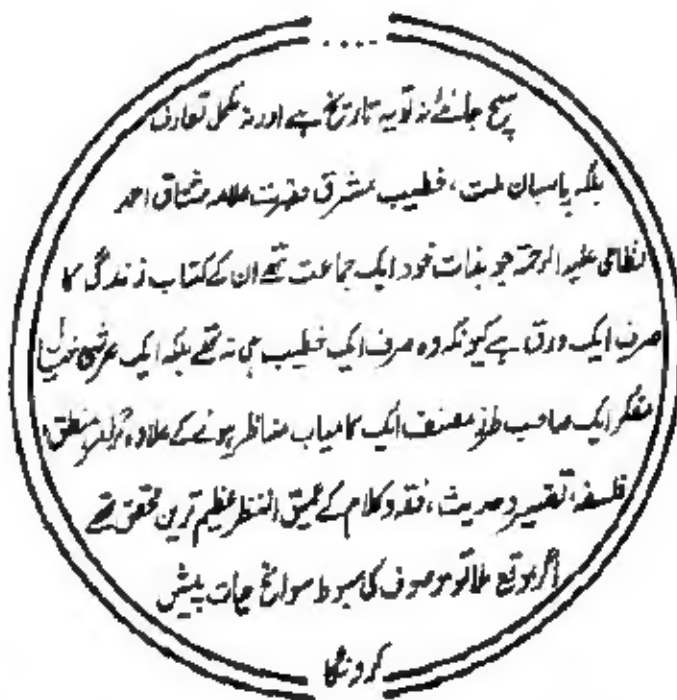 ....
سچ جانئے نہ تو یہ تاریخ ہے اور نہ مکمل تعارف
بلکہ پاسبان ملت، خطیب مشرق حضرت علامہ مشتاق احمد
نظامی علیہ الرحمۃ جو بذات خود ایک جماعت تھے ان کے کتاب زندگی کا
صرف ایک ورق ہے کیونکہ وہ صرف ایک خطیب ہی نہ تھے بلکہ ایک
مفکر ایک صاحب طرز مصنف ایک کامیاب مناظر ہونے کے علاوہ منطق،
فلسفہ، تفسیر و حدیث، فقہ و کلام کے عمیق النظر عظیم ترین محقق تھے
اگر موقع ملا تو موصوف کی مبسوط سوانح حیات پیش
کرونگا